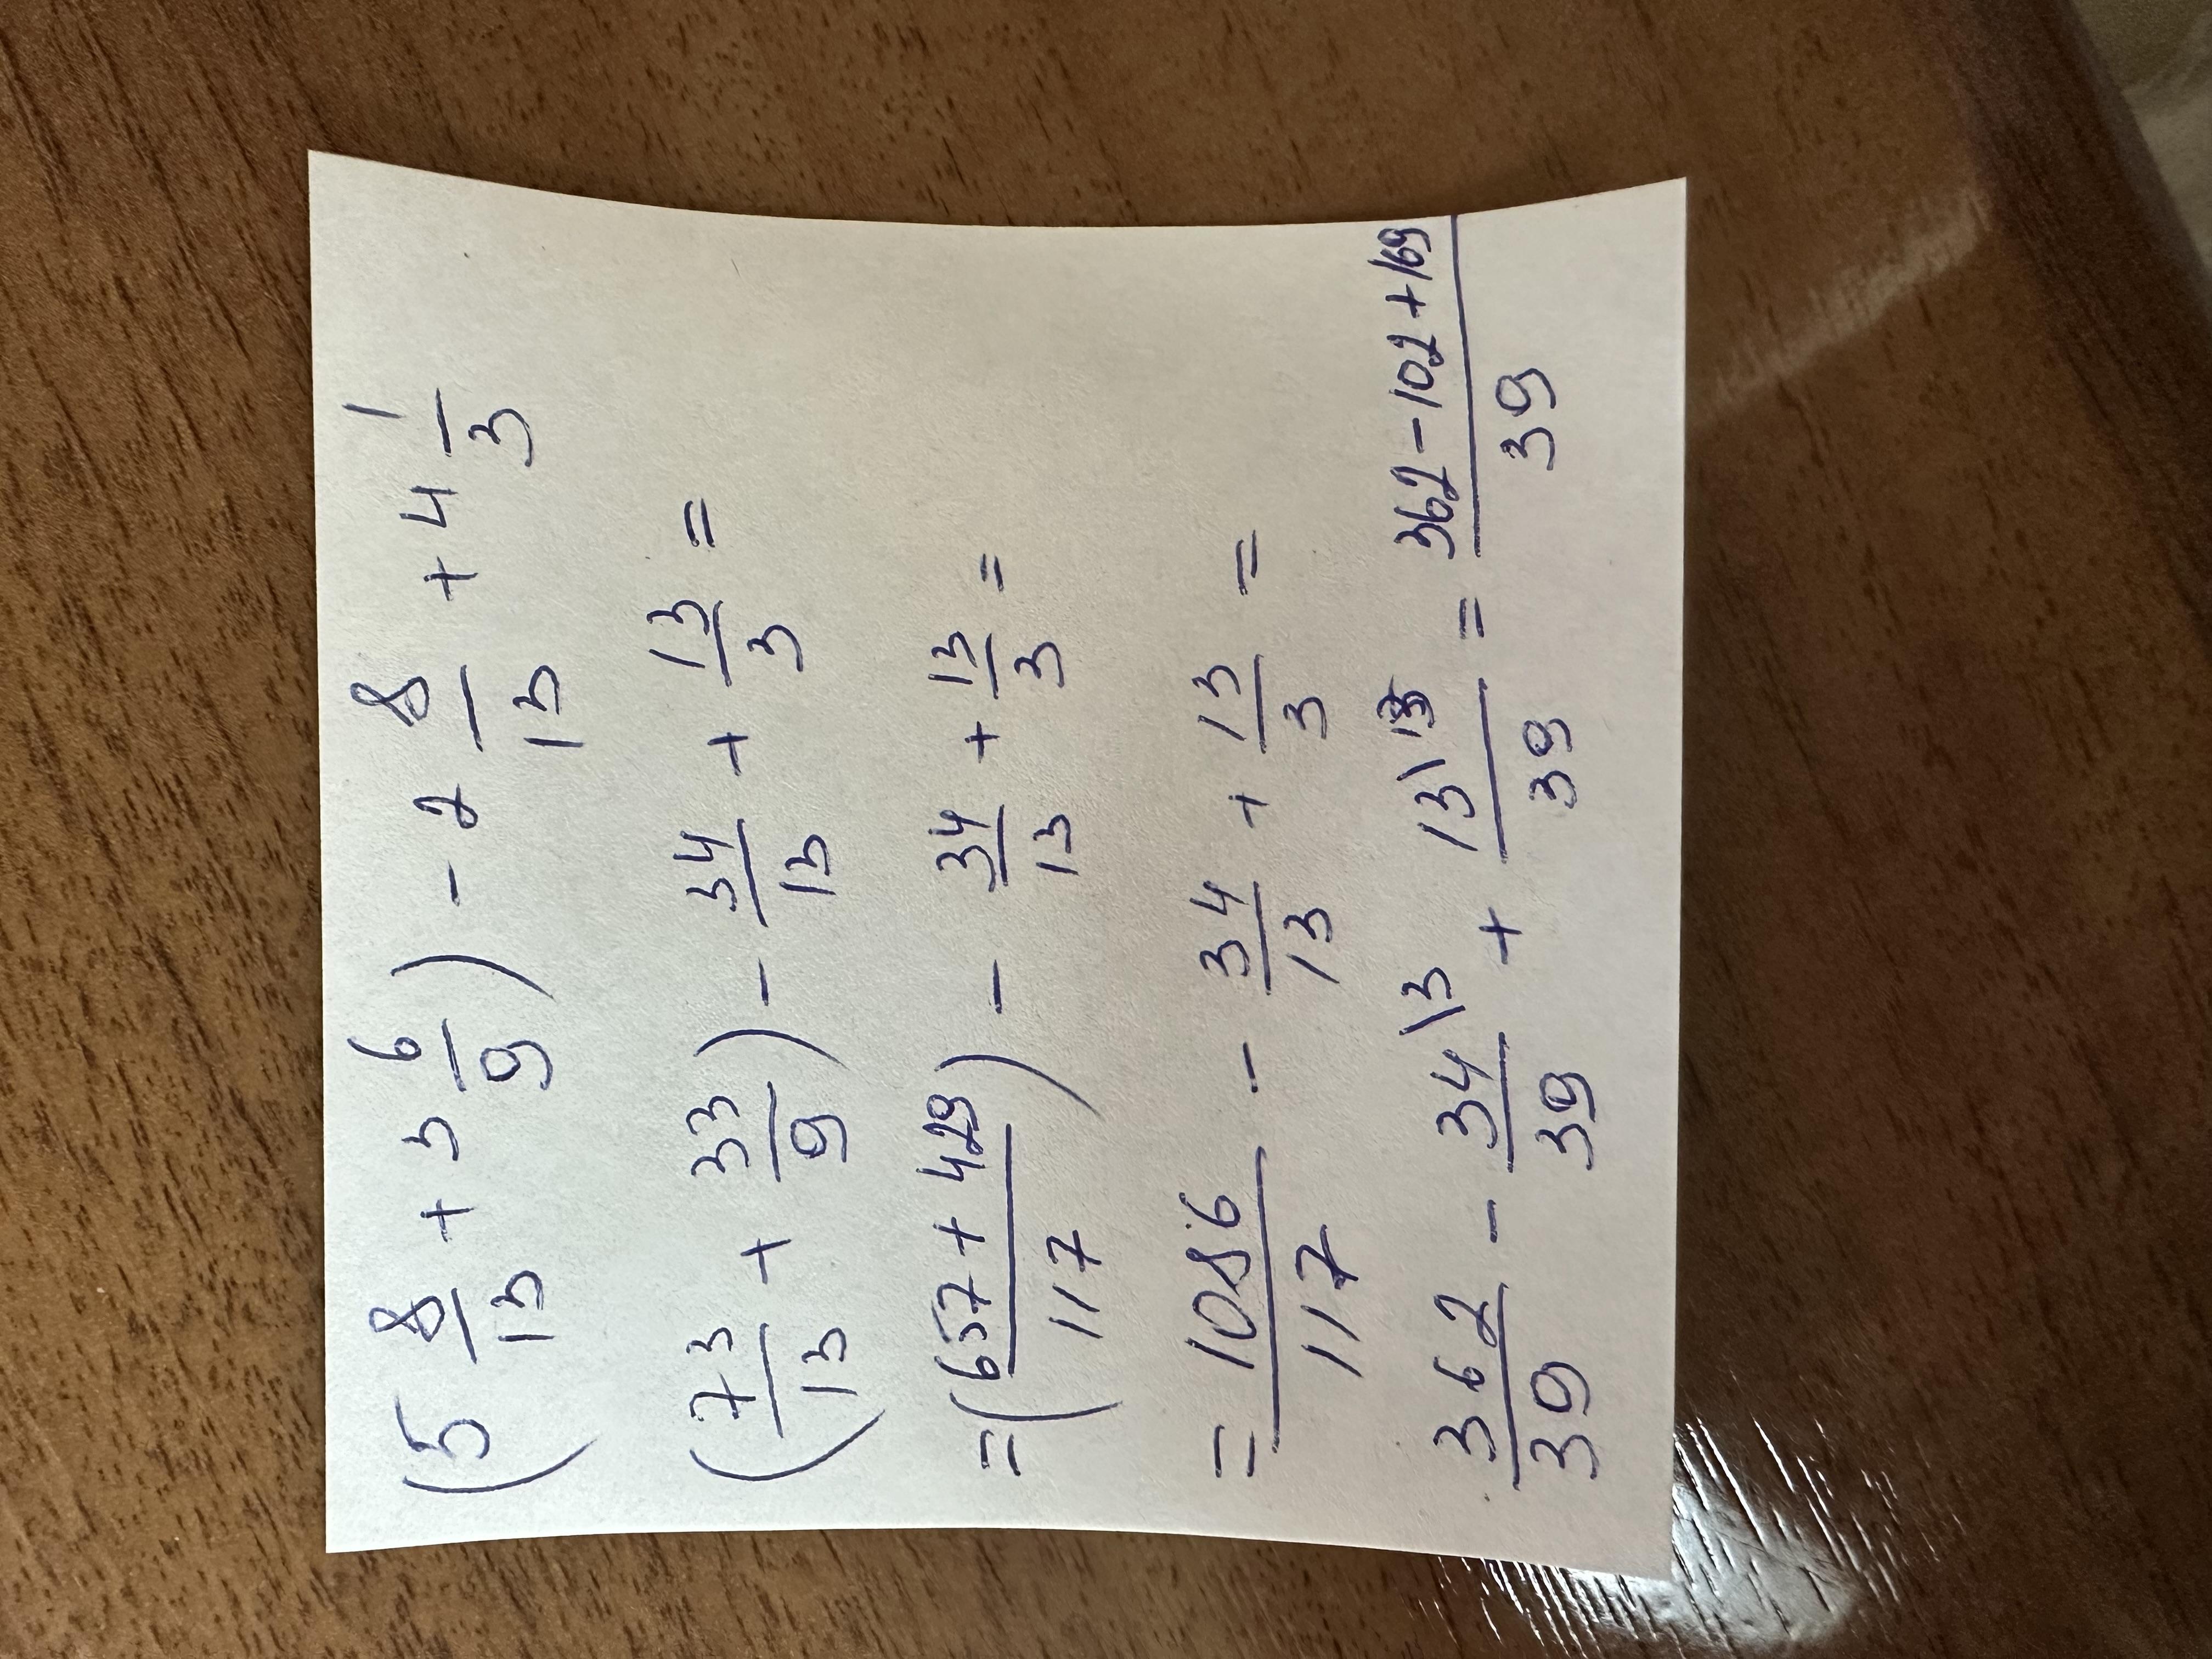 (5 8/13 + 3 6/9) - 2 8/13 + 4 1/3
(73/13 + 33/9) - 34/13 + 13/3 =
=(657 + 429/117) - 34/13 + 13/3 =
= 1086/117 - 34/13 + 13/3 =
362/39 - 34\3/39 + 13\13/39 = 362-102+169/39